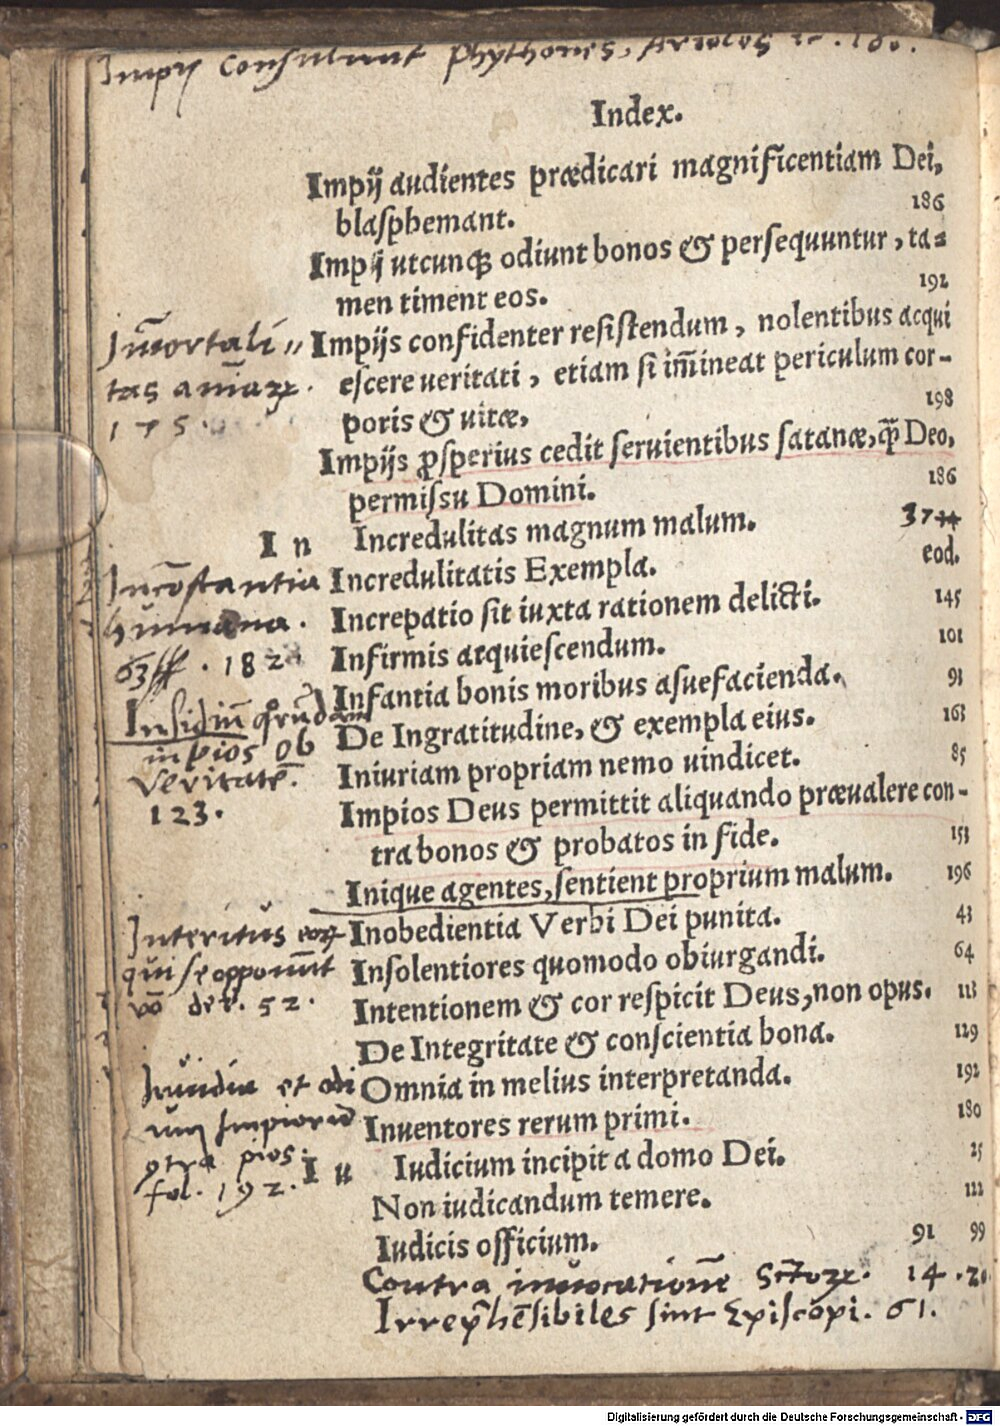 Impij consulunt Phythones, Ariolos
Index.
Impij audientes prædicari magnificentiam Dei,
blasphemant. 186
Impij utcunq; odiunt bonos & persequuntur, ta-
men timent eos. 192
Impijs confidenter resistendum, nolentibus acqui
escere ueritati, etiam si im̃ineat periculum cor-
poris & uitæ, 198
Impijs ꝓsperius cedit seruientibus satanæ, q̃ Deo,
permissu Domini. 186
I n Incredulitas magnum malum. 37
Incredulitatis Exempla. eod.
Increpatio sit iuxta rationem delicti. 145
Infirmis acquiescendum. 101
Infantia bonis moribus asuefacienda. 93
De Ingratitudine, & exempla eius. 163
Iniuriam propriam nemo uindicet. 85
Impios Deus permittit aliquando præualere con-
tra bonos & probatos in fide. 153
Inique agentes, sentient proprium malum. 196
Inobedientia Verbi Dei punita. 43
Insolentiores quomodo obiurgandi. 64
Intentionem & cor respicit Deus, non opus. 113
De Integritate & conscientia bona. 129
Omnia in melius interpretanda. 192
Inuentores rerum primi. 180
I u Iudicium incipit a domo Dei. 25
Non iudicandum temere. 122
Iudicis officium. 91 99
Contra inuocationē Sctoꝝ. 14 . 21
Irrep̃hēsibiles sint Episcopi. 61.
Im̄ortali〃
tas animaꝝ.
175.
Incōstantia
humana.
63 . 182
Insidiae quorundam
in pios ob
veritatē.
123.
Interitus eoꝝ
qui se opponūt
vo dei. 52.
Inuidia et odi
um Impiorū
9tra pios.
fol. 192.
Digitalisierung gefördert durch die Deutsche Forschungsgemeinschaft - DFG